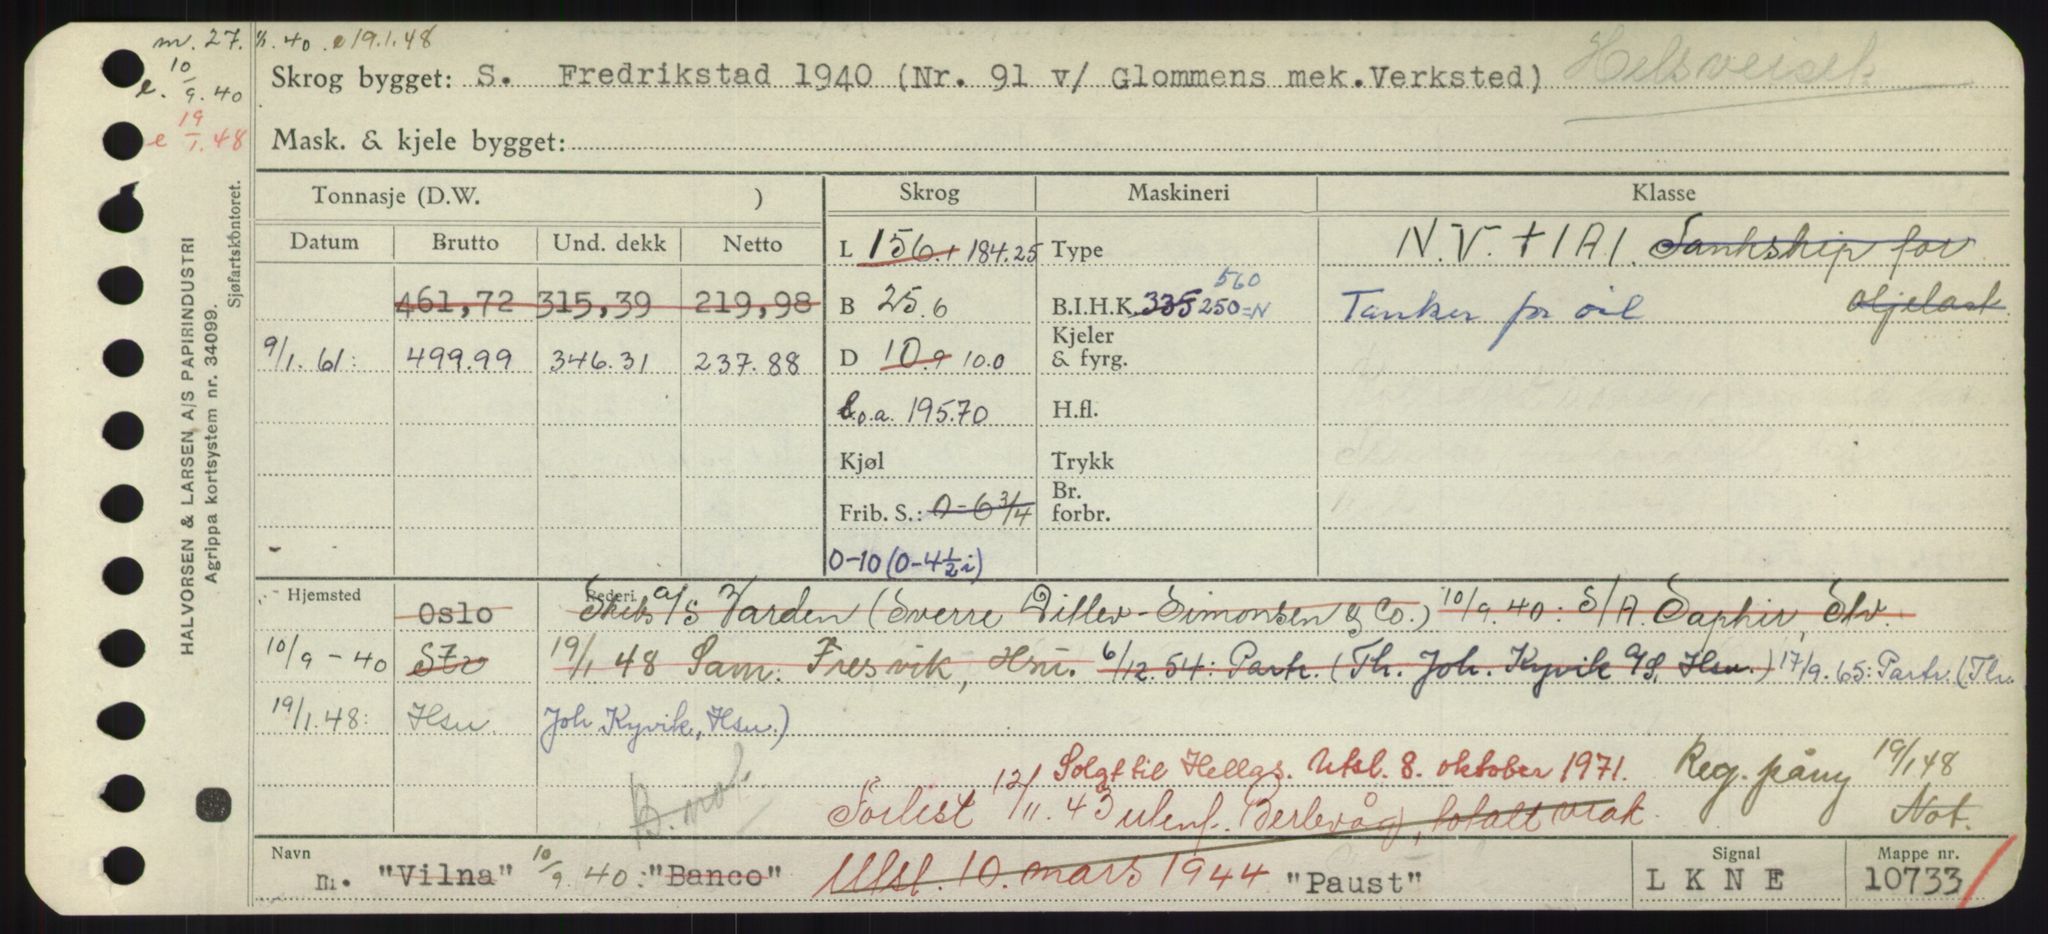 m. 27. 8. 40. e 19.1.48
e. 10/9.40
e 19/1.48
Skrog bygget: S. Fredrikstad 1940 (Nr. 91 v/ Glommens mek.Verksted) Helsveiset
Mask. & kjele bygget:
HALVORSEN & LARSEN A/S PAPIRINDUSTRI
Agrippa kortsystem nr. 34099.
Sjøfartskontoret.
Tonnasje (D.W. ) Skrog Maskineri Klasse
Datum Brutto Und. dekk Netto L 156.1 184.25 Type N.V. + 1A1. Tankskip for
461,72 315,39 219,98 B 25.6 B.I.H.K. 335 250=N 560 Tanker for oil oljelast
9/1.61: 499.99 346.31 237.88 D 10.9 10.0 Kjeler & fyrg.
l.o.a. 195.70 H.fl.
Kjøl Trykk
Frib. S.: 0-6 3/4 Br. forbr.
0-10 (0-4 1/2 i)
Hjemsted Rederi
Oslo Skibs a/s Varden (Sverre Ditlev-Simonsen & Co.) 10/9.40: S/A. Saphir, Stv.
10/9-40 Stv 19/1 48 Sam. Fresvik, Hsu. 6/12.54: Partr. (Th. Joh. Kyvik A/S, Hsu.) 17/9.65: Partr. (Th.
19/1.48: Hsu. Joh Kyvik, Hsu.)
Solgt til Hellas. Utsl. 8. oktober 1971. Reg. påny 19/1 48
B. not. Forlist 12/11.43 utenf. Berlevåg, totalt vrak. Not.
Navn Signal Mappe nr.
m. "Vilna" 10/9.40: "Banco" Utsl. 10. mars 1944 "Paust" L K N E 10733